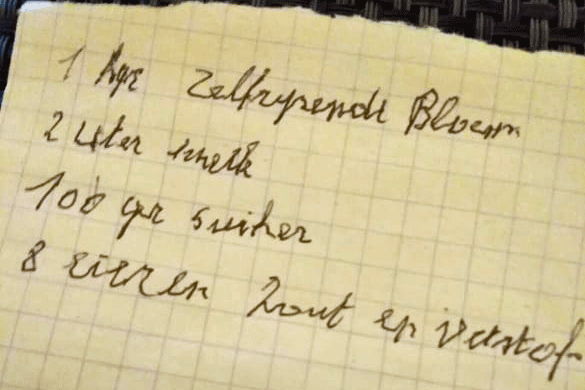 1 kgr Zelfryzende Bloem
2 Liter melk
100 gr suiker
8 eieren Zout en vetstof